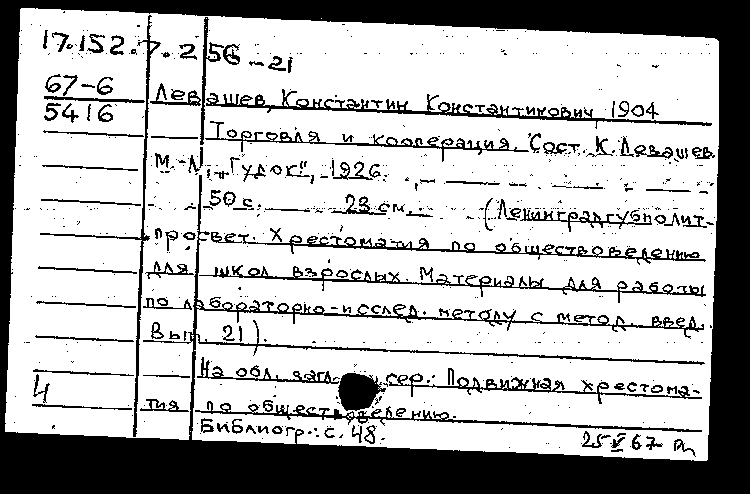 17.152.7.256-21
67-6
5416
Левашев, Константин Константинович, 1904
Торговля и кооперация. Сост. К. Левашев.
М.-Л., "Гудок", 1926.
50 с. 23 см. (Ленинградгубполит-
просвет. Хрестоматия по обществоведению
для школ взрослых. Материалы для работы
по лабораторно-исслед. методу с метод. введ.
Вып. 21).
На обл. загл. сер.: Подвижная хрестома-
4
тия по обществоведению.
Библиогр.: с. 48.
25 V 67